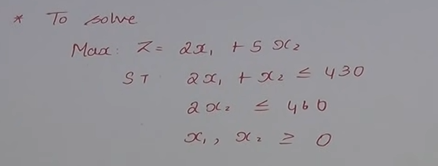 * To solve
Max: Z = 2x₁ + 5x₂
ST 2x₁ + x₂ ≤ 430
2x₂ ≤ 460
x₁, x₂ ≥ 0